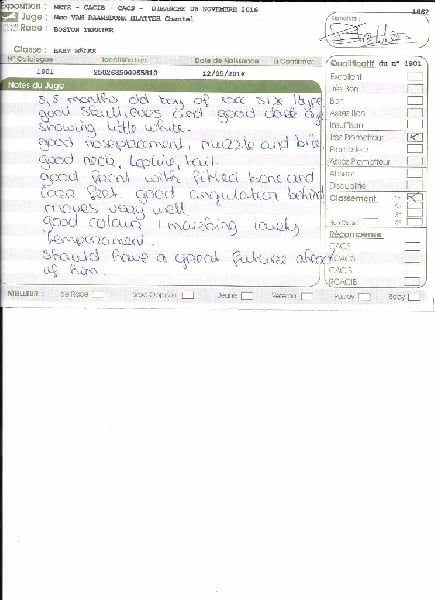 Exposition : METZ - CACIB - CACS - DIMANCHE 06 NOVEMBRE 2016
1662
Juge : Mme VAN RAAMSDONK SLATTER Chantal
Signature :
Race : BOSTON TERRIER
Classe : BABY MÂLES
N° Catalogue Identification Date de Naissance à Confirmer
1901 12/05/2016
Qualificatif du n° 1901
Notes du Juge
5,5 months old boy of nice size type
good skull, eyes and good dark eye
showing little white.
good noseplacement, muzzle and bite
good neck, topline, tail.
good front with fitted bone and
feet good angulation behind
moves very well
good colour / marking lovely
temperament.
should have a great future ahead
of him.
Excellent
Très Bon
Bon
Assez Bon
Insuffisant
Très Prometteur
Prometteur
Assez Prometteur
Absent
Disqualifié
Classement 1er
2e
3e
4e
Non Classé
Récompense
CACS
RCACS
CACIB
RCACIB
MEILLEUR : de Race Sexe Opposé Jeune Vétéran Puppy Baby